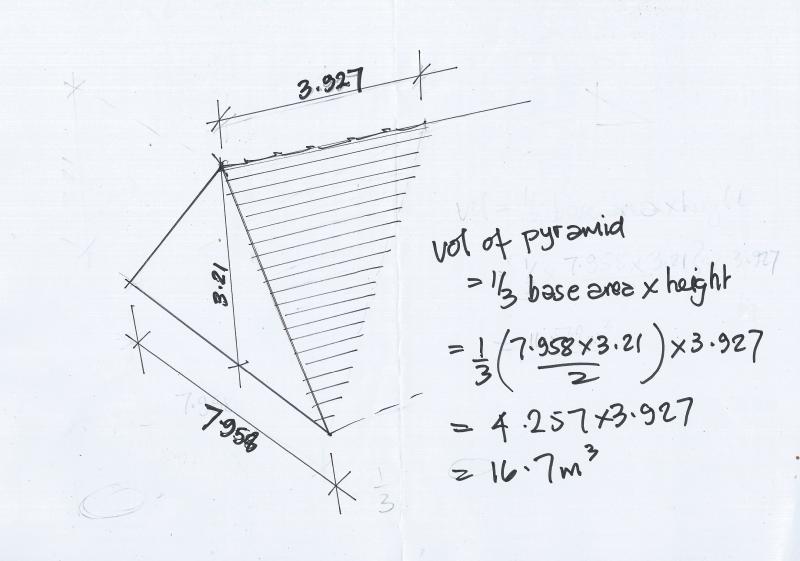 3.927
3.21
7.958
Vol of pyramid
= 1/3 base area x height
= 1/3 (7.958 x 3.21 / 2) x 3.927
= 4.257 x 3.927
= 16.7 m³
1/3